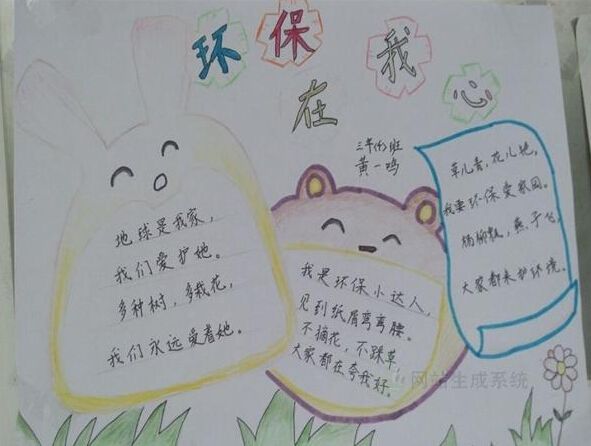 环保
在我
三年(4)班
黄一鸣
地球是我家，
我们爱护她。
多种树，多栽花，
我们永远爱着她。
我是环保小达人，
见到纸屑弯弯腰。
不摘花，不踩草，
大家都在夸我好。
草儿青，花儿艳，
我要环保爱家园。
杨柳飘，燕子飞，
大家都来护环境。
网站生成系统